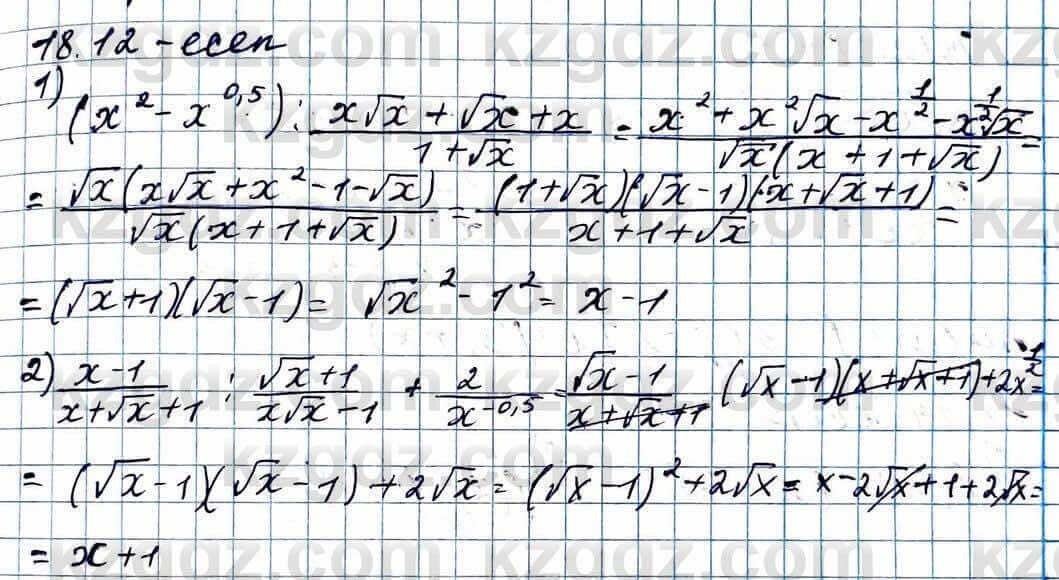 18.12-есеп
1) (x² - x^0,5) : (x√x + √x + x)/(1 + √x) = (x² + x²√x - x^(1/2) - x^(1/2)√x)/(√x(x + 1 + √x)) =
= (√x(x√x + x² - 1 - √x))/(√x(x + 1 + √x)) = ((1 + √x)(√x - 1)(x + √x + 1))/(x + 1 + √x) =
= (√x + 1)(√x - 1) = √x² - 1² = x - 1
2) (x - 1)/(x + √x + 1) : (√x + 1)/(x√x - 1) + 2/(x^-0,5) = (√x - 1)/(x + √x + 1) (√x - 1)(x + √x + 1) + 2x^(1/2) =
= (√x - 1)(√x - 1) + 2√x = (√x - 1)² + 2√x = x - 2√x + 1 + 2√x =
= x + 1